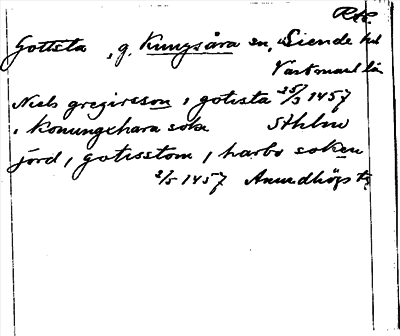 RHC.
Gottsta , g. Kungsåra sn, Siende hd
Västmanl län
Niels gregirsson i gotista 25/3 1457
i Konungxhara sokn Sthlm
jord i gotisstom i harbo soken
2/5 1457 Anundhögs tg